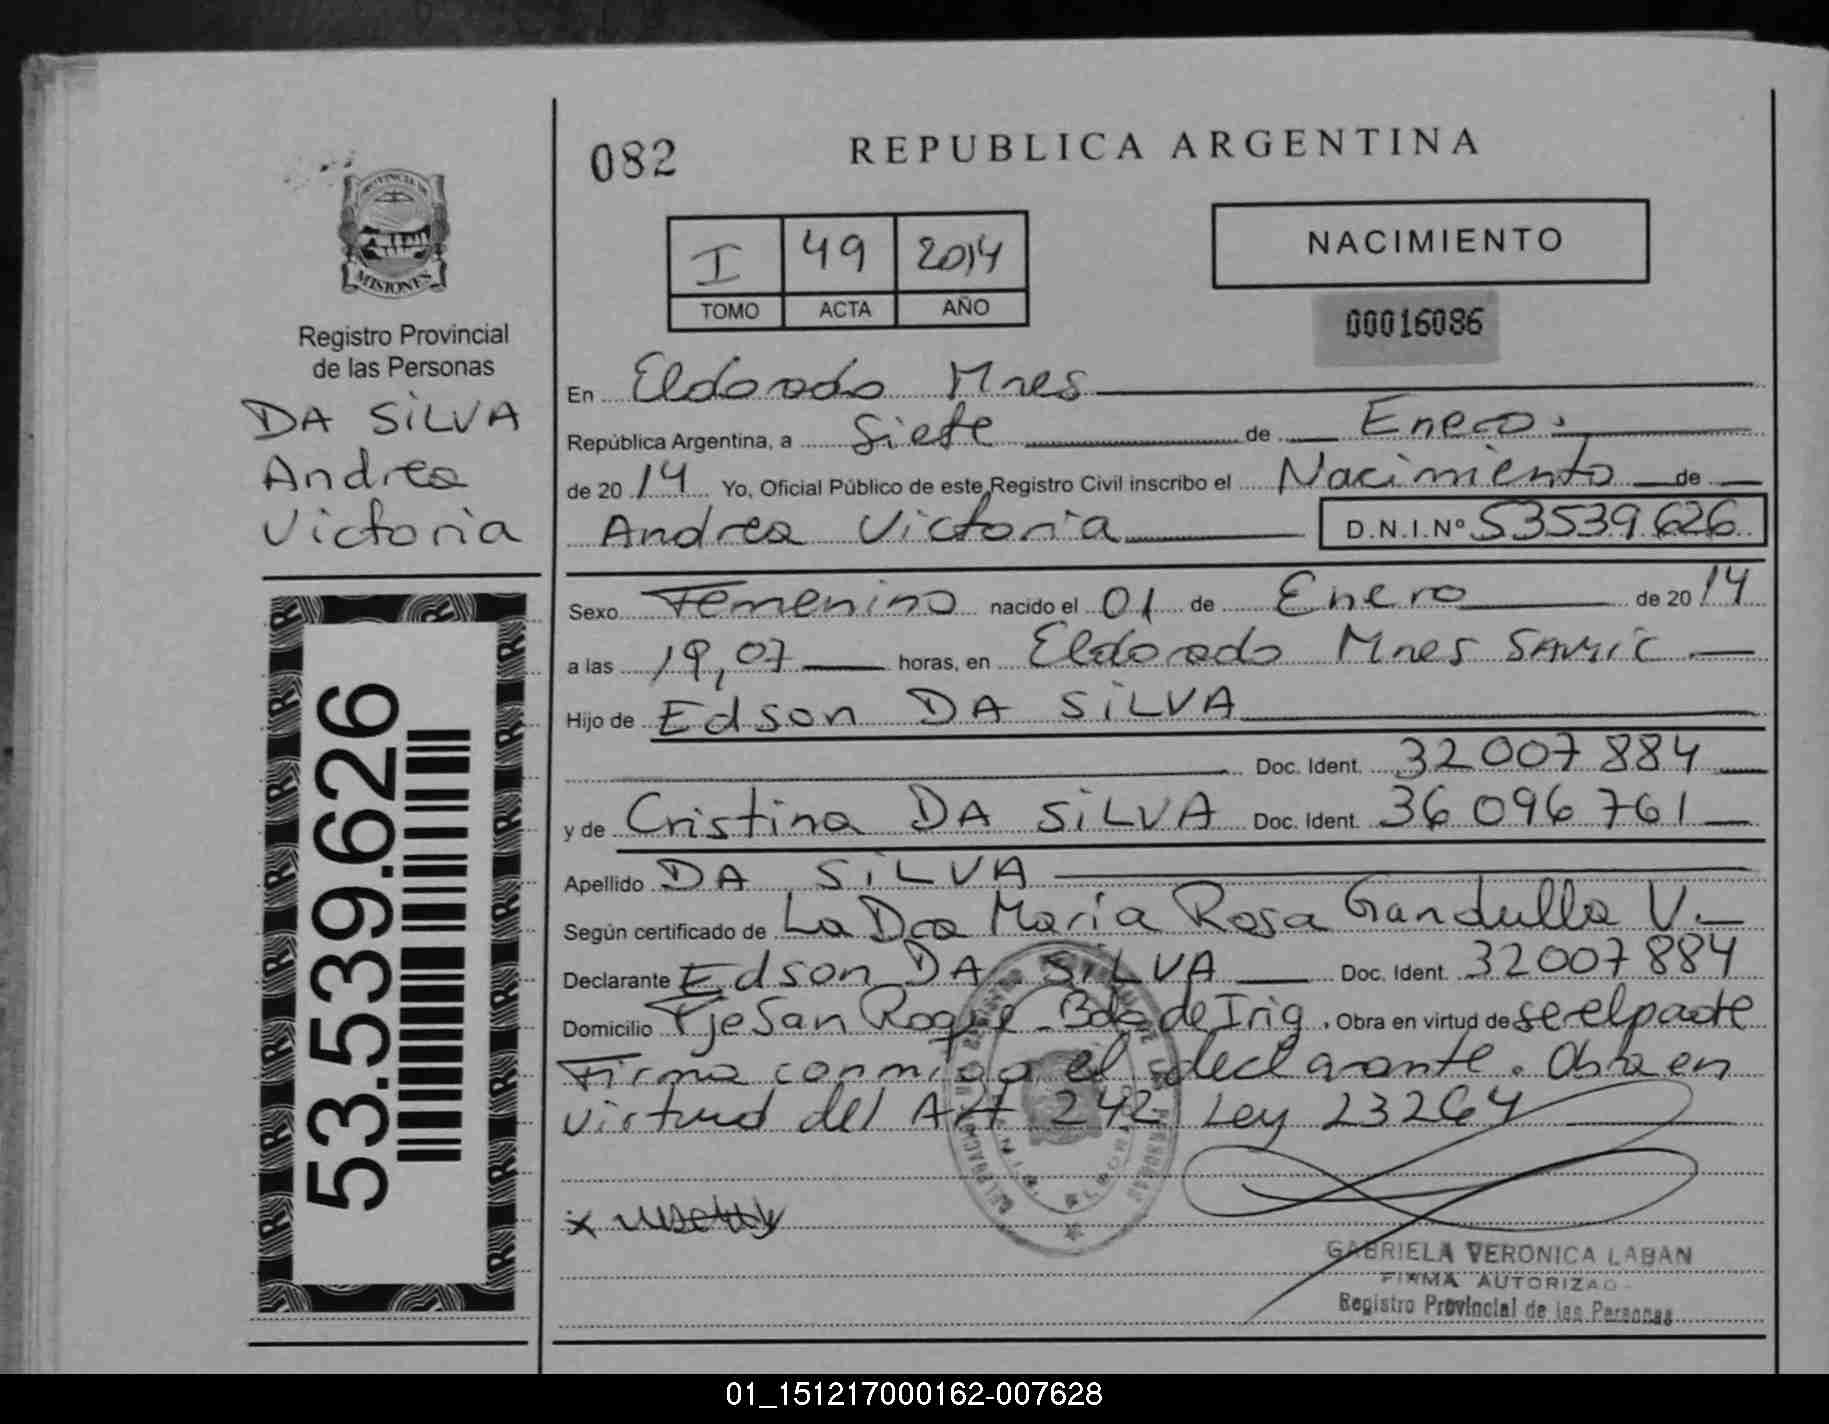 082
REPUBLICA ARGENTINA
PROVINCIA DE
MISIONES
Registro Provincial
de las Personas
DA SILVA
Andrea
Victoria
53.539.626
I 49 2014
TOMO ACTA AÑO
NACIMIENTO
00016086
En Eldorado Mnes
República Argentina, a Siete de Enero
de 2014 Yo, Oficial Público de este Registro Civil inscribo el Nacimiento de
Andrea Victoria D.N.I.Nº 53539.626
Sexo Femenino nacido el 01 de Enero de 2014
a las 19,07 horas, en Eldorado Mnes SAMIC
Hijo de Edson DA SILVA
Doc. Ident. 32007884
y de Cristina DA SILVA Doc. Ident. 36096761
Apellido DA SILVA
Según certificado de La Dra Maria Rosa Gandulla V.
Declarante Edson DA SILVA Doc. Ident. 32007884
Domicilio Pje San Roque Bdo de Irig. Obra en virtud de ser el padre
Firma conmigo el declarante. Obra en
virtud del Art 242 Ley 23264
x
GABRIELA VERONICA LABAN
FIRMA AUTORIZAD
Registro Provincial de las Personas
01_151217000162-007628